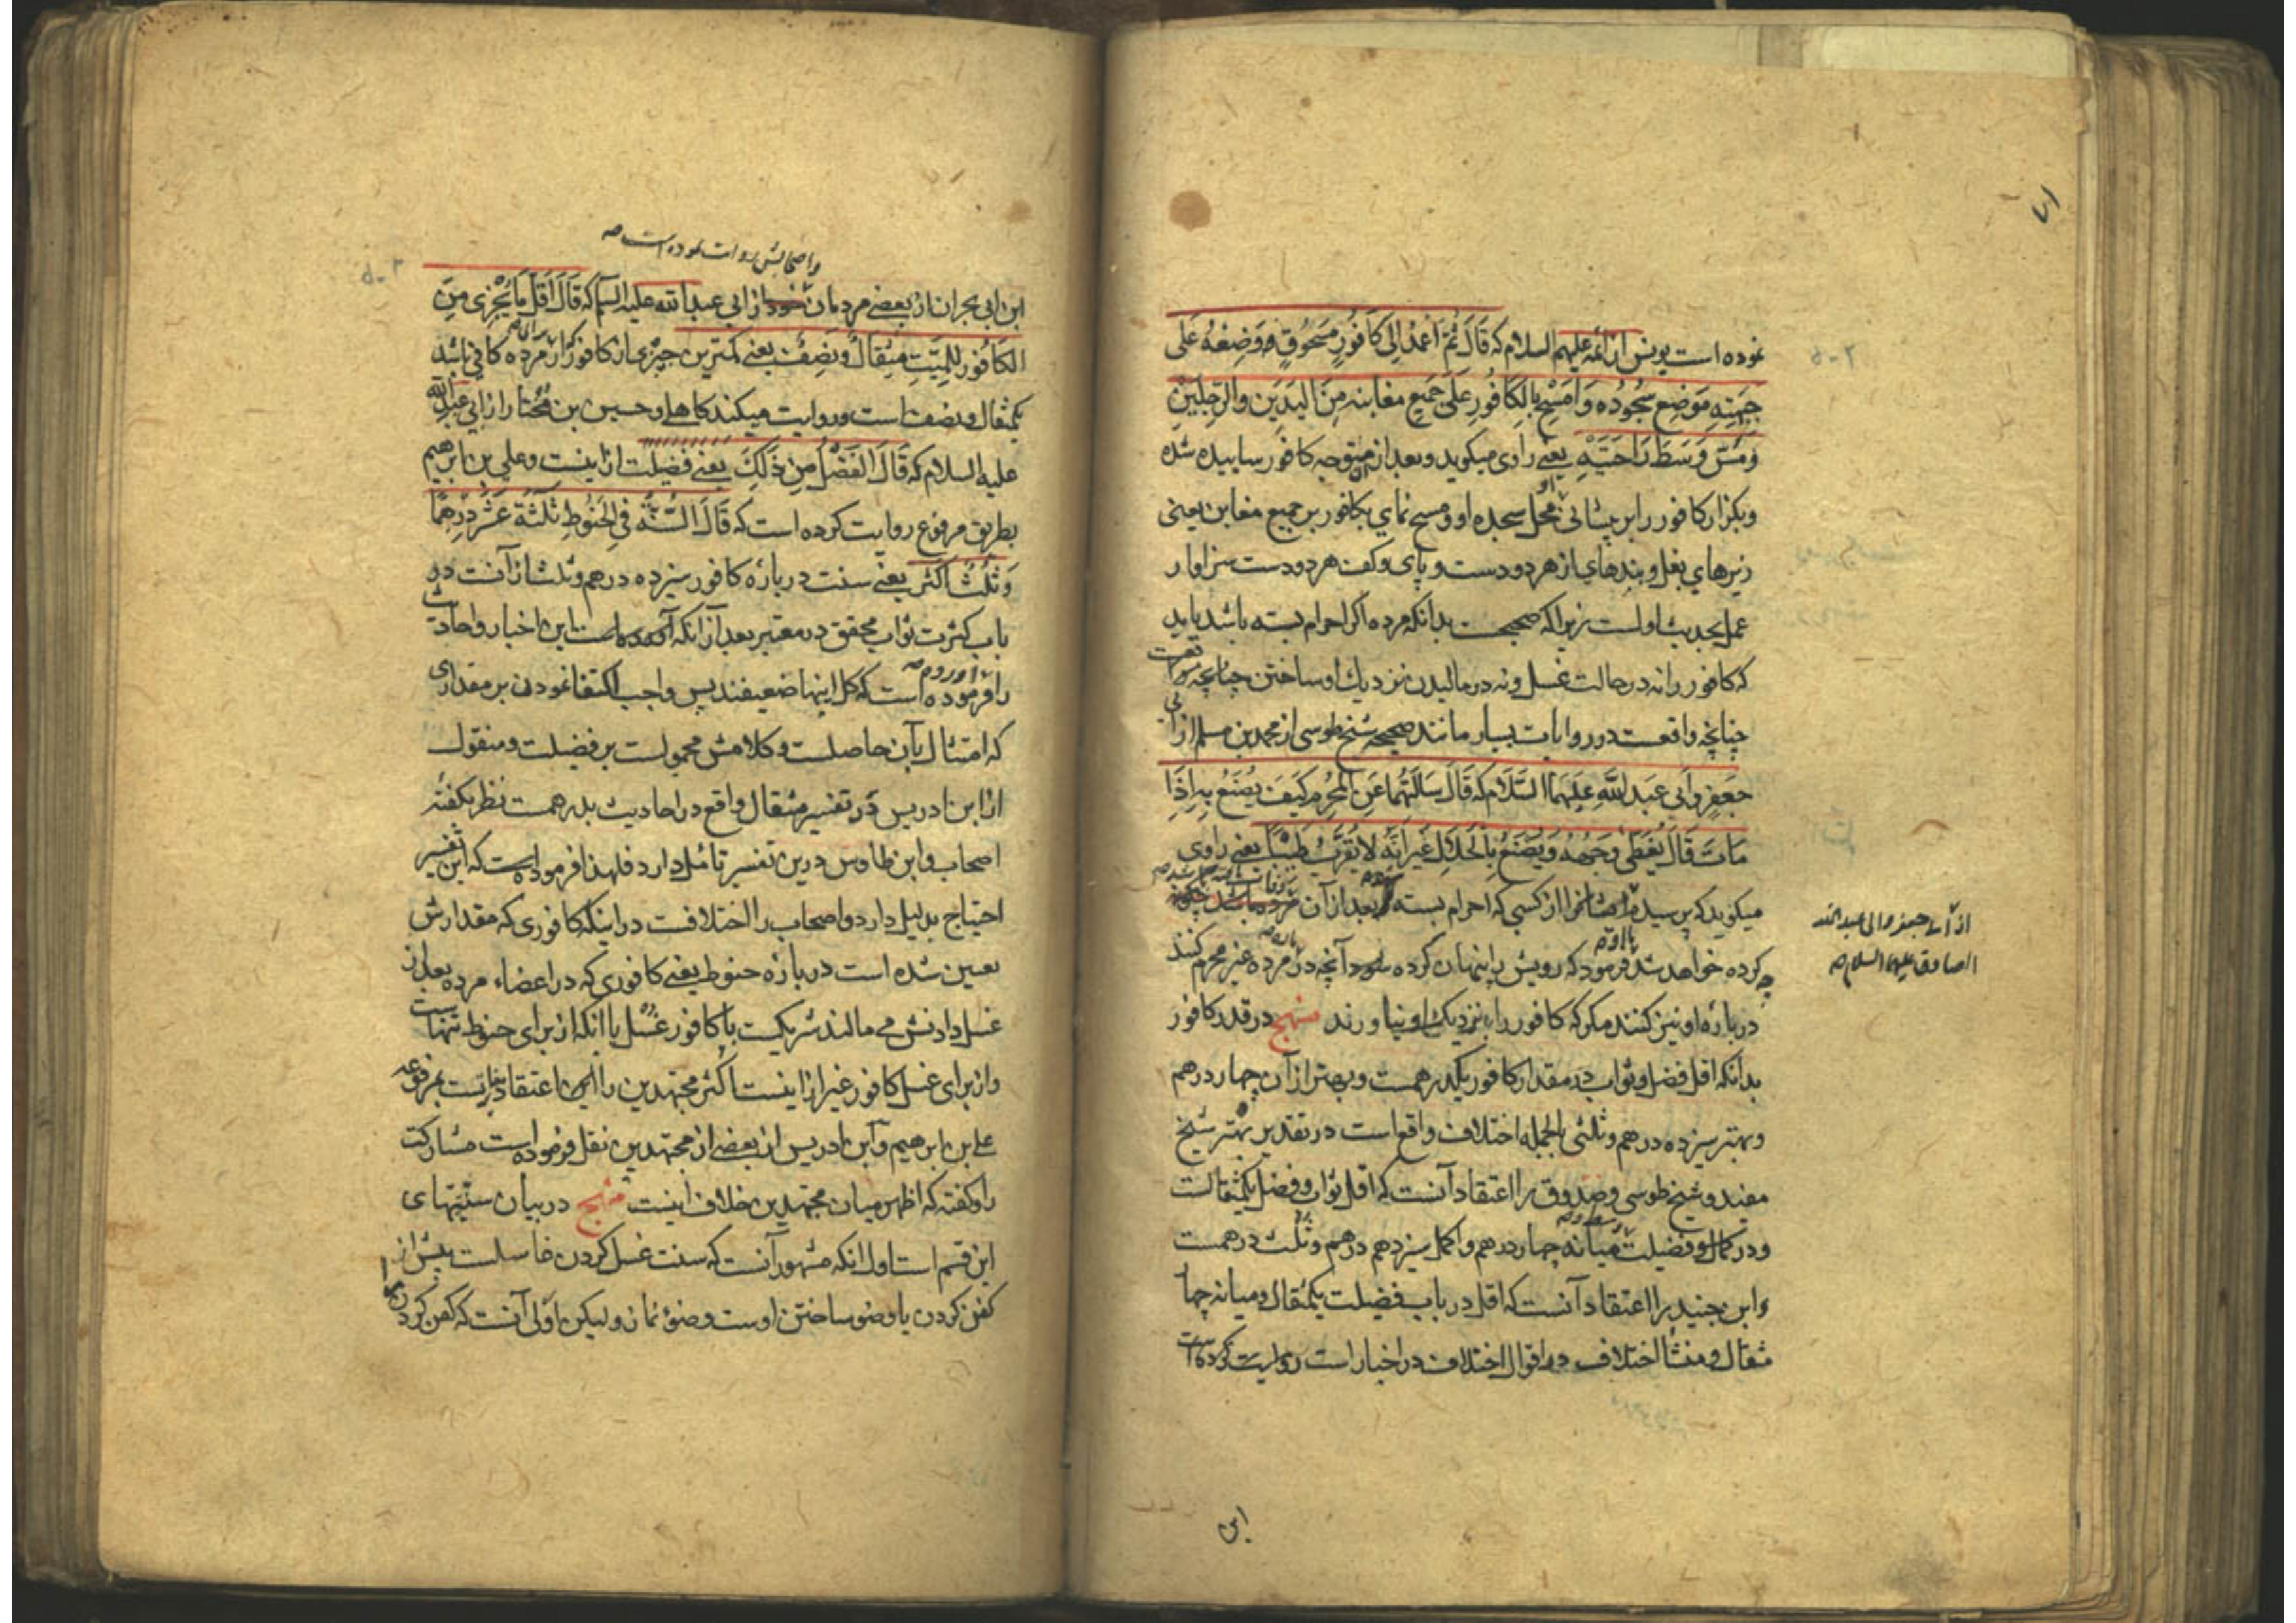 نموده است یونس از ائمه علیهم السلام که قَالَ ثُمَّ اعْمِدْ اِلی کَافُورٍ مَسْحُوقٍ فَوَضِعْهُ عَلَی
جَبْهَتِهِ مَوْضِع سُجُودِه وَامْسَحْ بِالکَافُورِ عَلَی جَمِیعِ مغابنه مِنَ الیَدَینِ والرِّجلَیْنِ
وَسَطَ رَاحَتَیْهِ یعنے راوی میکوید وبعد ازان متوجه کافور ساییده شده
وبکزار کافور را بر پیشانی محل سجده او ومسح نمای بکافور بر جمیع مغابن یعنی
زیرهای بغل وبندهای از هر دو دست وپای وکف هر دو دست سزاوار
عمل بحدیث اولست زیراکه صحیحست بدانکه مرده اکر احرام بسته باشد باید
که کافور را نه در حالت غسل ونه در مالیدن نزدیک او ساختن چنانچه
چنانچه واقعست در روایات بسیار مانند صحیحه شیخ طوسی از محمد بن مسلم از ابی
جَعفرٍ وأَبی عَبدِ اللَّهِ عَلَیهِمَا السَّلَام که قَالَ سَاَلتُهُمَا عَنِ المُحْرِمِ کَیفَ یُصْنَعُ بِهِ اِذَا
مَاتَ قَالَ یُغَطّی وَجْهُهُ وَیُصْنَعُ بِالْحَلَالِ غَیرَ اَنَّهُ لَا یُقَرَّبُ طِیْبًا یعنے راوی
میکوید که پرسیدم از کسی که احرام بسته بعد از آن
کرده خواهد شد فرمود که رویش را پنهان کرده آنچه در مرده غیر محرم کنند
درباره او نیز کنند مکر که کافور را نزدیک او نیاورند منهج در قدر کافور
بدانکه اقل فضل وثواب در مقدار کافور یکدرهمست وبهتر از آن چهار درهم
وبهتر سیزده درهم وثلثی بالجمله اختلاف واقع است در تقدیر بهتر شیخ
مفید وشیخ طوسی وصدوق را اعتقاد آنست که اقل ثواب وفضل یکمثقالست
ودر کمال وفضیلت میانه چهار درهم واکمل سیزدهم درهم وثلث درهمست
وابن جنید را اعتقاد آنست که اقل در باب فضیلت یکمثقال ومیانه چهار
مثقال ومنشأ اختلاف در اقوال اختلاف در اخبار است روایت کرده است
از ابی جعفر وابی عبد الله
الصادق علیهما السلام صح
ابن
واصحابش روایت نموده است صح
ابن ابی نجران از بعضے مردمان از ابی عبد الله علیه السلام که قَالَ اَقَلُّ مَا یُجْزِی مِنَ
الکَافُورِ لِلمَیِّتِ مِثقَالٌ ونِصْفٌ یعنے کمترین چیزی از کافور از برای مرده کافی باشد
یکمثقال ونصف است وروایت میکند کاهلی وحسین بن مُختار از ابی عبد الله
علیه السلام که قَالَ الفَضْلُ مِن ذَلِکَ یعنے فضیلت ازاینست وعلی بن ابرهیم
بطریق مرفوع روایت کرده است که قَالَ السُّنَّةُ فی الحَنُوطِ ثَلٰثَةَ عَشَرَ دِرْهَمًا
وَثُلُثٌ اَکثَر یعنے سنت درباره کافور سیزده درهم وثلث ازآنست در
باب کثرت ثواب محقق در معتبر بعد از آنکه این اخبار واحادیث
را آورده صح فرموده است که کل اینها ضعیفند پس واجب اکتفا نمودن بر مقداری
که امتثال بآن حاصلست وکلامش محمولست بر فضیلت ومنقول
از ابن ادریس در تفسیر مثقال واقع در احادیث بدرهمست نظر بکفته
اصحاب وابن طاوس درین تفسیر تامل دارد فلهذا فرموده است که این تفسیر
احتیاج بدلیل دارد واصحاب را اختلافست دراینکه کافوری که مقدارش
تعیین شده است درباره حنوط یعنے کافوری که در اعضاء مرده بعد از
غسل دادنش مے مالند شریکست با کافور غسل یا انکه از برای حنوط تنهاست
واز برای غسل کافور غیر ازاینست اکثر مجتهدین را این اعتقاد
علی بن ابرهیم وابن ادریس از بعضے از مجتهدین نقل فرموده است مشارکت
را وکفته که اظهر میان مجتهدین خلاف اینست منهج در بیان سنّتهای
این قسم است اول انکه مشهور آنست که سنت غسل کردن غاسلست پیش از
کفن کردن یا وضو ساختن اوست وضوء نماز ولیکن اولی آنست که کفن کردن